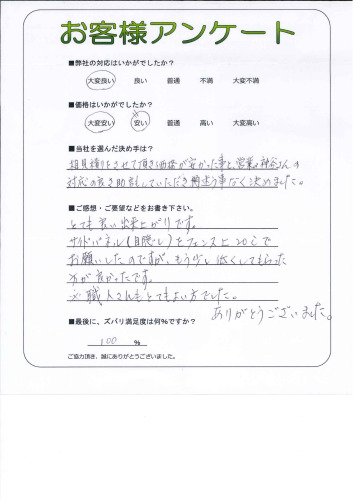 お客様アンケート
■弊社の対応はいかがでしたか?
大変良い 良い 普通 不満 大変不満
■価格はいかがでしたか?
大変安い 安い 普通 高い 大変高い
■当社を選んだ決め手は?
相見積りをさせて頂き価格が安かった事と、営業の神谷さんの
対応の良さ助言していただき迷う事なく決めました。
■ご感想・ご要望などをお書き下さい。
とても良い出来上がりです。
サイドパネル(目隠し)をフェンス上20cで
お願いしたのですが、もう少し低くしてもらった
方が良かったです。
※職人さんもとてもよい方でした。
ありがとうございました。
■最後に、ズバリ満足度は何%ですか?
100 %
ご協力頂き、誠にありがとうございました。